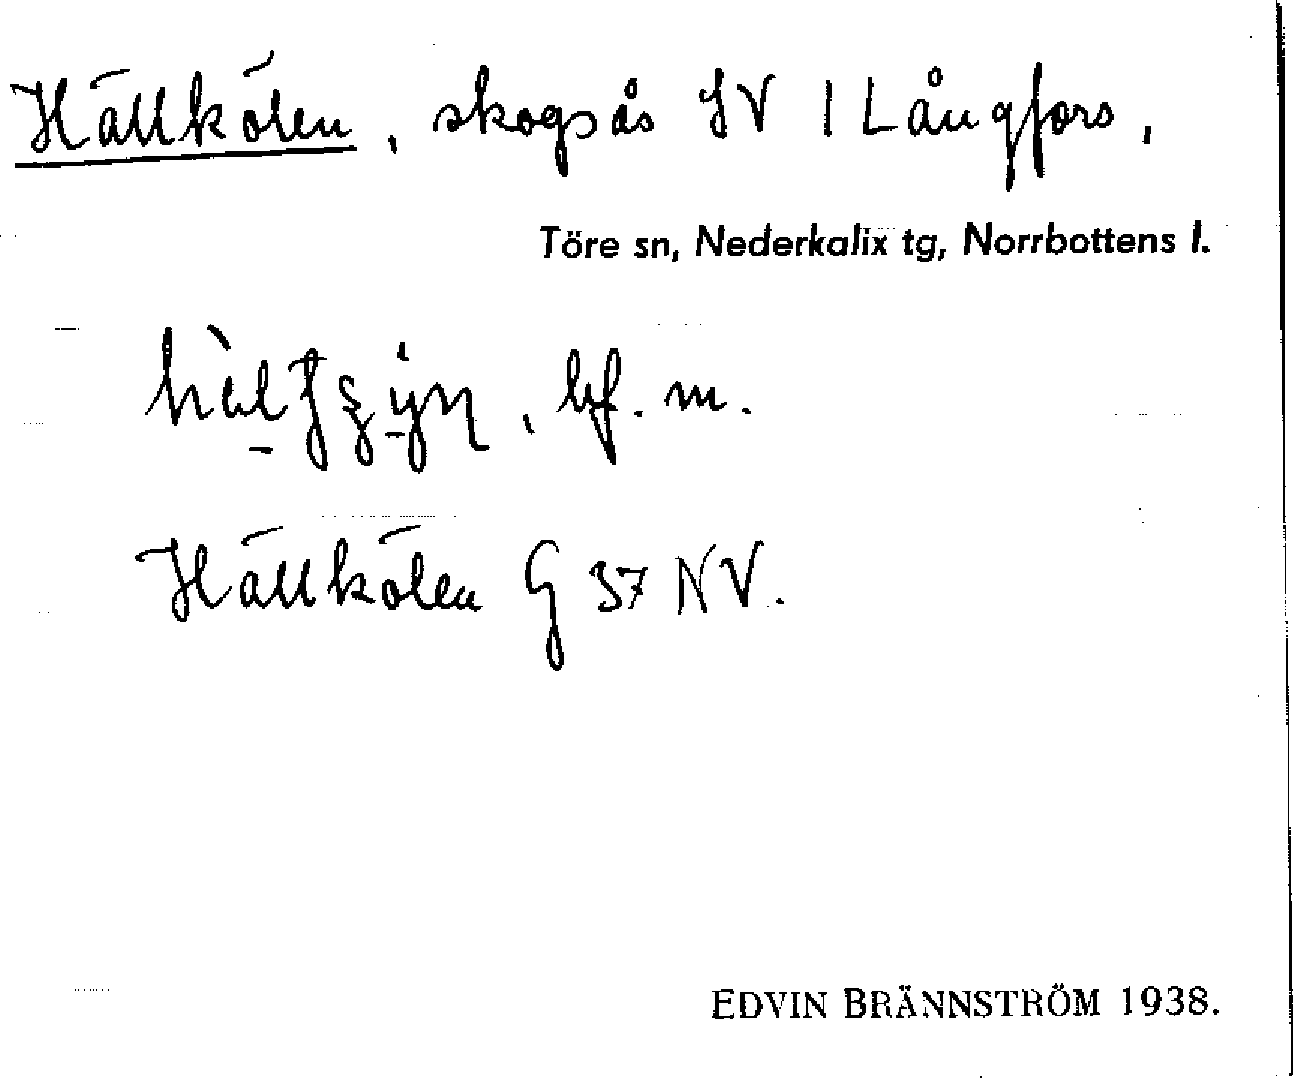 Hällkölen, skogsås SV I Långfors,
Töre sn, Nederkalix tg, Norrbottens l.
bf. m.
Hällkölen G 37 NV.
EDVIN BRÄNNSTRÖM 1938.